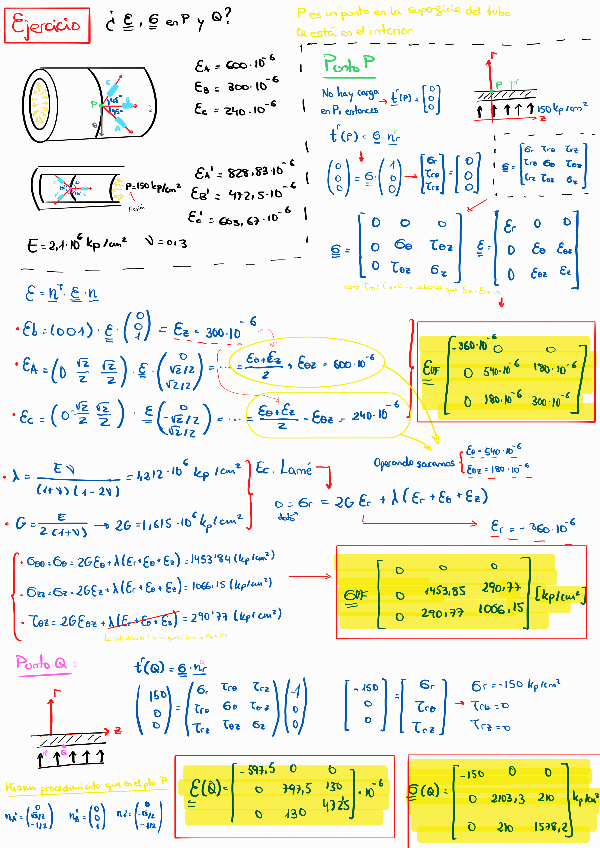 Ejercicio ¿ ε, σ en P y Q?
P es un punto en la superficie del tubo
Q está en el interior
εA = 600·10⁻⁶
εB = 300·10⁻⁶
εC = 240·10⁻⁶
P=150 kp/cm²
εA' = 828,83·10⁻⁶
εB' = 472,5·10⁻⁶
εC' = 603,67·10⁻⁶
E = 2,1·10⁶ kp/cm² ν = 0,3
Punto P
No hay carga
en P, entonces → tʳ(P) = (0 0 0)
150 kp/cm²
tʳ(P) = σ · nr
(0 0 0) = σ · (1 0 0) → [σr τrθ τrz] = [0 0 0]
σ = [σr τrθ τrz
τrθ σθ τθz
τrz τθz σz]
σ = [0 0 0
0 σθ τθz
0 τθz σz]
ε = [εr 0 0
0 εθ εθz
0 εθz εz]
ε = nᵀ · ε · n
• εb = (0 0 1) · ε · (0 0 1) = εz = 300·10⁻⁶
• εA = (0 √2/2 √2/2) · ε · (0 √2/2 √2/2) = ··· = (εθ+εz)/2 + εθz = 600·10⁻⁶
• εC = (0 -√2/2 √2/2) · ε (0 -√2/2 √2/2) = ··· = (εθ+εz)/2 - εθz = 240·10⁻⁶
Operando sacamos { εθ = 540·10⁻⁶
εθz = 180·10⁻⁶
ε = [-360·10⁻⁶ 0 0
0 540·10⁻⁶ 180·10⁻⁶
0 180·10⁻⁶ 300·10⁻⁶]
• λ = Eν/((1+ν)(1-2ν)) = 1,212·10⁶ kp/cm²
• G = E/(2(1+ν)) → 2G = 1,615·10⁶ kp/cm²
Ec. Lamé
0 = σr = 2G εr + λ(εr + εθ + εz)
dato
εr = -360·10⁻⁶
• σθθ = σθ = 2Gεθ + λ(εr+εθ+εz) = 1453'84 (kp/cm²)
• σzz = σz = 2Gεz + λ(εr+εθ+εz) = 1066,15 (kp/cm²)
• τθz = 2Gεθz + λ(εr+εθ+εz) = 290'77 (kp/cm²)
[0 0 0
0 1453,85 290,77
0 290,77 1066,15] [kp/cm²]
Punto Q:
tʳ(Q) = σ · nr
(150 0 0) = (σr τrθ τrz
τrθ σθ τθz
τrz τθz σz) (-1 0 0)
[-150 0 0] = [σr τrθ τrz] → σr = -150 kp/cm²
τrθ = 0
τrz = 0
Mismo procedimiento que en el pto P
ε(Q) = [-597,5 0 0
0 797,5 130
0 130 472,5] · 10⁻⁶
σ(Q) = [-150 0 0
0 2103,3 210
0 210 1578,2] kp/cm²